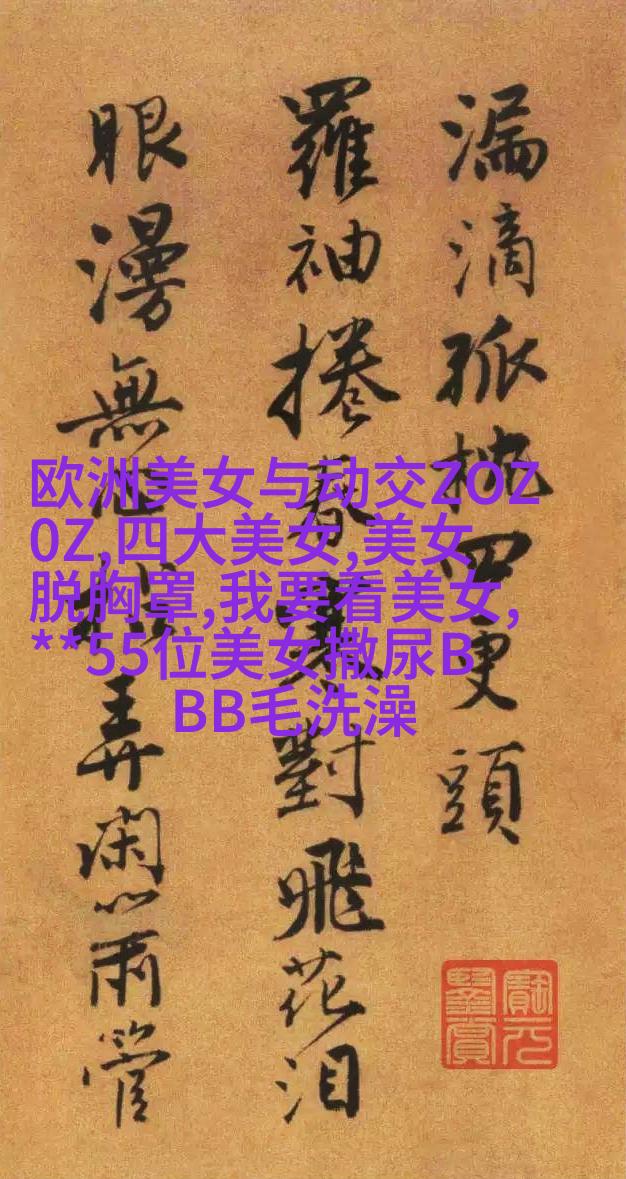 漏滴孤枕四更頭
羅袖捲春對飛花泪
眼漫無心弄閑管
欧洲美女与动交ZOZ
0Z,四大美女,美女
脱胸罩,我要看美女,
**55位美女撒尿B
BB毛洗澡